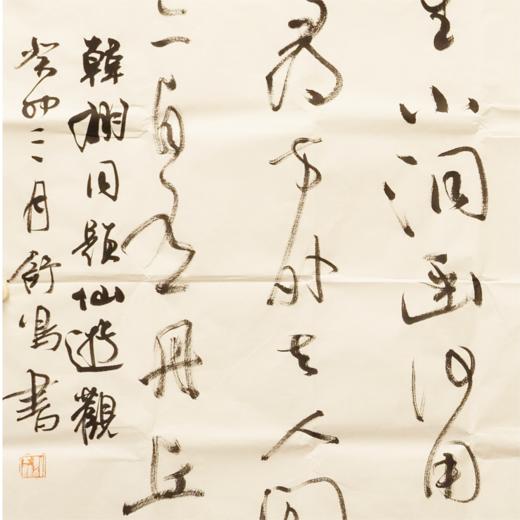 生小洞幽何用
尋方外去人間
亦自有丹丘
韓翃同題仙遊觀
癸卯三月舒鳴書